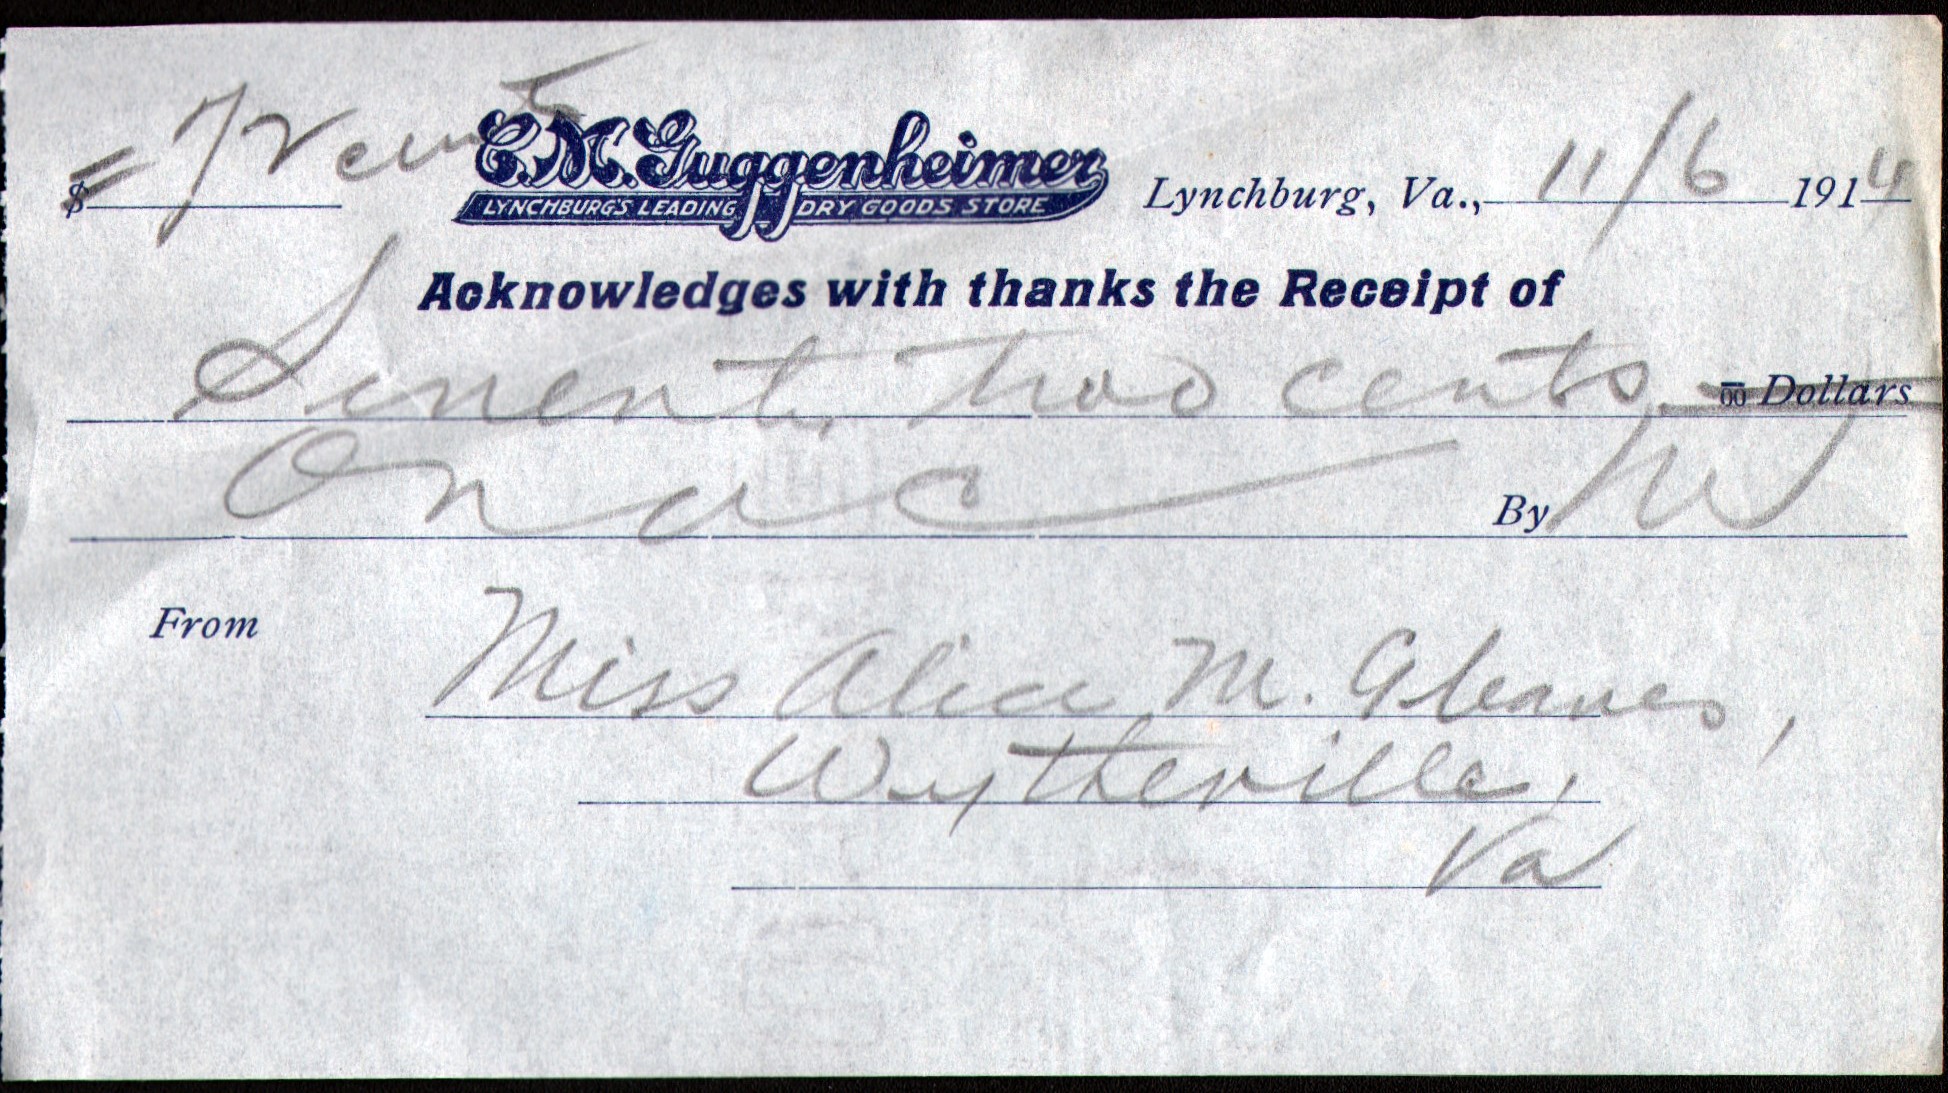 $ 72 cents
C. M. Guggenheimer
LYNCHBURG'S LEADING DRY GOODS STORE
Lynchburg, Va., 11/6 1914
Acknowledges with thanks the Receipt of
Seventy two cents 00 Dollars
On ac By
From Miss Alice M. Gleaves,
Wytheville,
Va